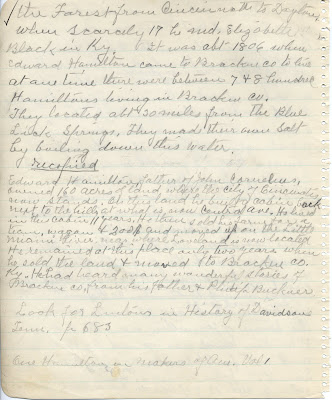 the Forest from Cincinnati to Dayton,
when scarcely 17 he md. Elizabeth
Black in Ky. It was abt 1806 when
Edward Hamilton came to Bracken Co to live
at one time there were between 7 & 8 hundred
Hamiltons living in Bracken Co.
They located abt 30 miles from the Blue
Lick Springs, They made their own Salt
by boiling down this water.
recopied
Edward Hamilton, father of John Cornelius,
owned 160 acres of land where the city of Cincinnati
now stands. On this land he built a cabin, back
up to the hills at what is now Central Ave. He lived
in this cabin years. He then sold this farm for a
team, wagon & 200$ and moved up on the Little
Miami river, near where Loveland is now located
He remained at this place only two years when
he sold the land & moved to Bracken Co.
Ky. He had heard many wonderful stories of
Bracken Co, from his father & Philip Buckner
Look for Lintons in History of Davidson
Tenn. p 683
in Makers of Am. Vol 1